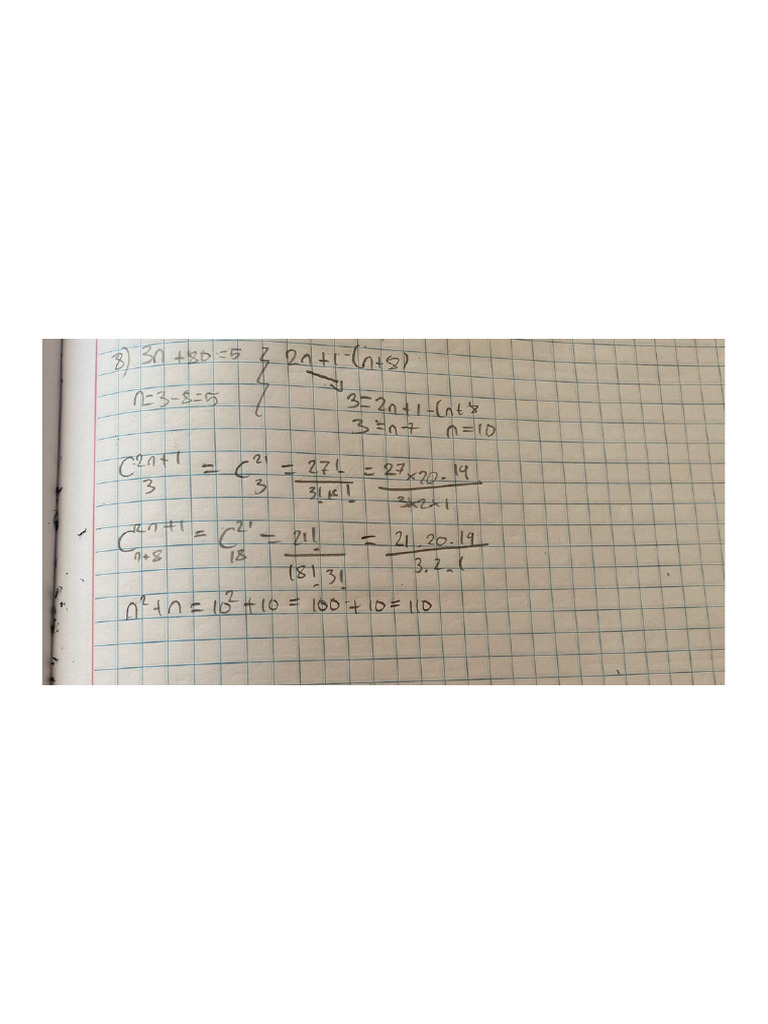 8) 3n + 80 = 5 { 2n + 1 - (n + 8)
n = 3 - 8 = 5
3 = 2n + 1 - (n + 8
3 = n - 7 n = 10
C^{2n+1}_{3} = C^{21}_{3} = 27! / 3! 18! = 27 × 20 · 19 / 3 × 2 × 1
C^{2n+1}_{n+8} = C^{21}_{18} = 21! / 18! 3! = 21 · 20 · 19 / 3 · 2 · 1
n² + n = 10² + 10 = 100 + 10 = 110